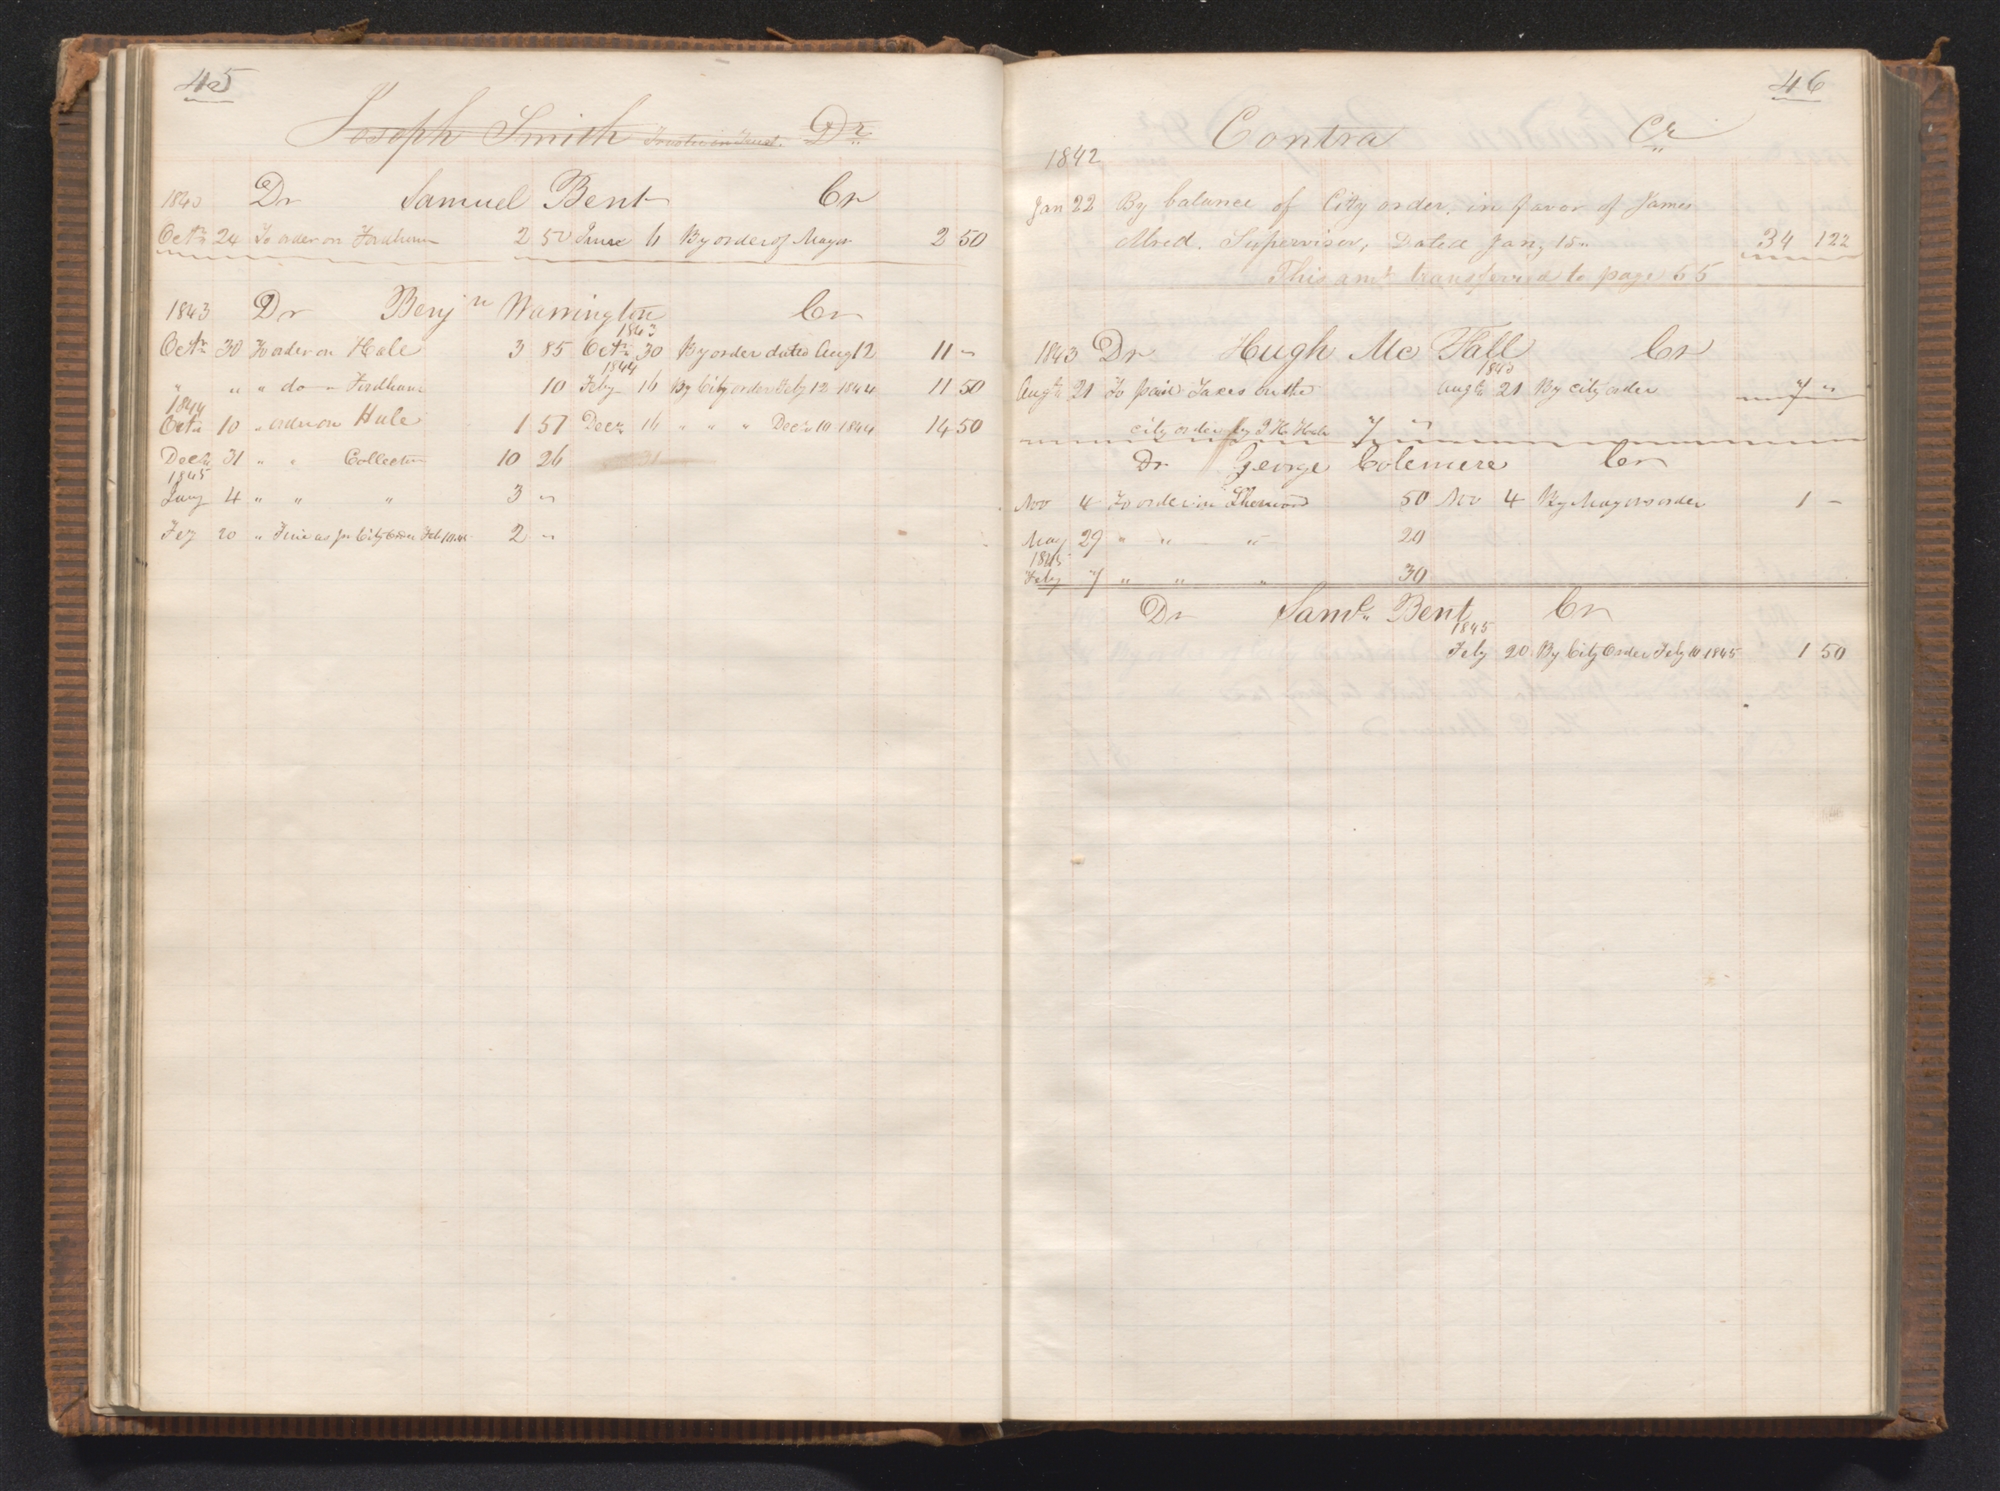 45
Joseph Smith Trustee in Trust. Dr
1843 Dr Samuel Bent Cr
Octr 24 To order on Fordham 2 50 June 6 By order of Mayor 2 50
1843 Dr Benjn Warrington Cr
1843
Octr 30 To order on Hale 3 85 Octr 30 By order dated Aug 12 11 "
1844
" " " do " Fordham 10 Feby 16 By City order Feby 12 1844 11 50
1844
Octr 10 " order on Hale 1 57 Decr 16 " " " Decr 10 1844 14 50
Decr 31 " " Collector 10 26 31
1845
Jany 4 " " " 3 "
Fey 20 " Fine as pr City Order Feb 10 2 "
46
Contra Cr
1842
Jan 22 By balance of City order, in favor of James
Alred. Supervisor, Dated Jany 15" 34 122
This amt transfered to page 55
1843 Dr Hugh Mc Fall Cr
1843
Augt 21 To paid Taxes on the Augt 21 By city order 7 "
city order by J H Hale 7 "
Dr George Colemere Cr
Nov 4 To order on Sherwood 50 Nov 4 By Mayors order 1 —
May 29 " " " 20
1845
Feby 7 " " " 30
Dr Saml Bent Cr
1845
Feby 20 By City Order Feby 10 1845 1 50